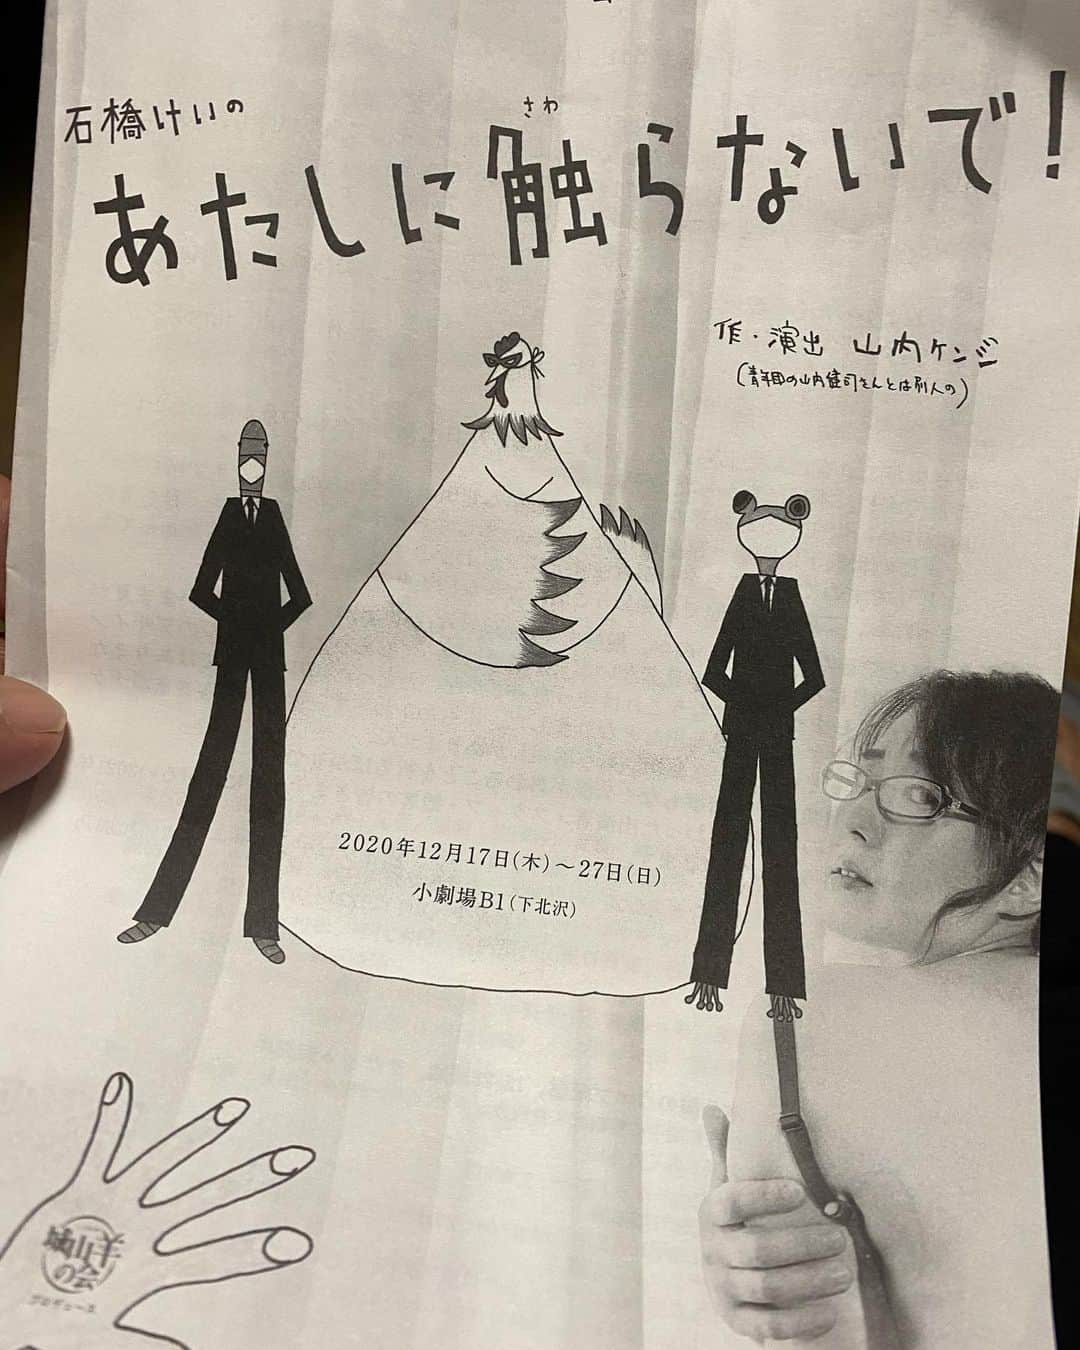 石橋けいの
さわ
あたしに触らないで!
作・演出 山内ケンジ
(青年団の山内健司さんとは別人の)
2020年12月17日(木)～27日(日)
小劇場B1(下北沢)
城山羊
の会
プロデュース